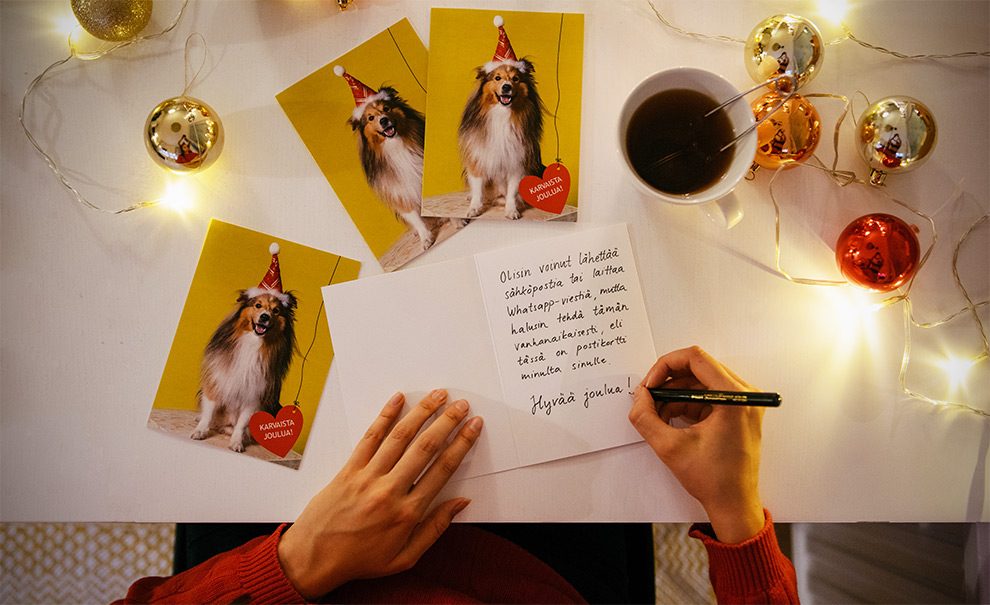 KARVAISTA
JOULUA!
KARVAISTA
JOULUA!
Olisin voinut lähettää
sähköpostia tai laittaa
Whatsapp-viestiä, mutta
halusin tehdä tämän
vanhanaikaisesti, eli
tässä on postikortti
minulta sinulle.
Hyvää joulua!